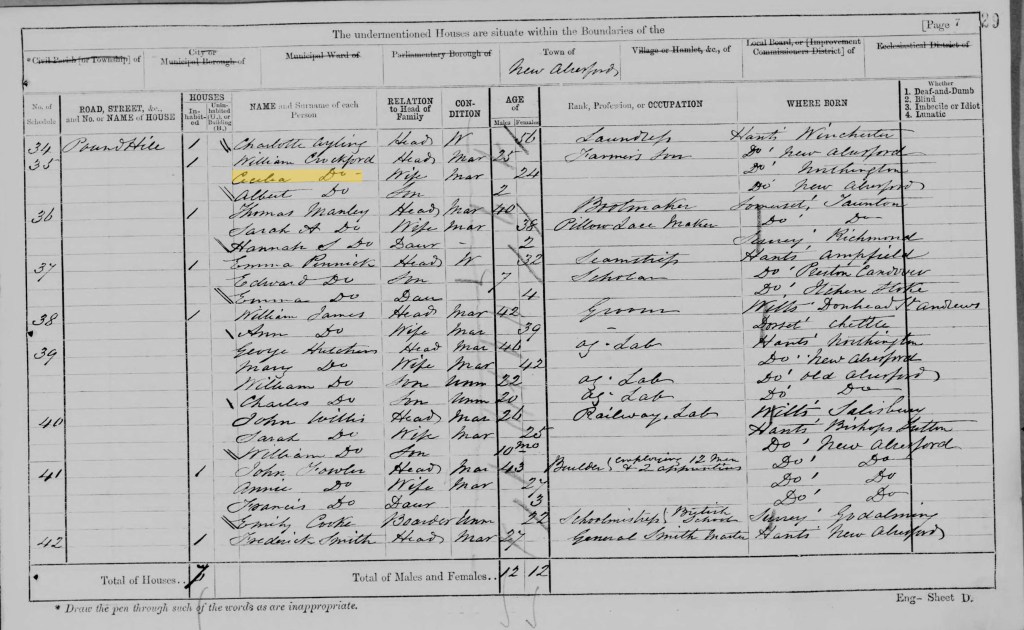 The undermentioned Houses are situate within the Boundaries of the [Page 7 29
*Civil Parish [or Township] of City or Municipal Borough of Municipal Ward of Parliamentary Borough of Town of New Alresford Village or Hamlet, &c., of Local Board, or [Improvement Commissioners District] of Ecclesiastical District of
No. of Schedule ROAD, STREET, &c., and No. or NAME of HOUSE HOUSES In-habit-ed Unin-habited (U.), or Building (B.) NAME and Surname of each Person RELATION to Head of Family CON-DITION AGE of Males Females Rank, Profession, or OCCUPATION WHERE BORN Whether 1. Deaf-and-Dumb 2. Blind 3. Imbecile or Idiot 4. Lunatic
34 Pound Hill 1 Charlotte Ayling Head W 56 Laundress Hants Winchester
35 1 William Cruckford Head Mar 25 Farmers Son Do New Alresford
Cecilia Do Wife Mar 24 Do Northington
Albert Do Son 2 Do New Alresford
36 1 Thomas Manley Head Mar 40 Bootmaker Somerset Taunton
Sarah A Do Wife Mar 38 Pillow Lace Maker Do Do
Hannah S Do Daur - 2 Surrey Richmond
37 1 Emma Pinnick Head W 32 Seamstress Hants Ampfield
Edward Do Son 7 Scholar Do Preston Candover
Emma Do Daur 4 Do Itchen Stoke
38 1 William James Head Mar 42 Groom Wilts Donhead St Andrews
Ann Do Wife Mar 39 Dorset Chettle
39 George Hutchins Head Mar 46 Ag. Lab Hants Northington
Mary Do Wife Mar 42 Do New Alresford
William Do Son Unm 22 Ag. Lab Do Old Alresford
Charles Do Son Unm 20 Ag. Lab Do Do
40 John Willis Head Mar 26 Railway Lab Wilts Salisbury
Sarah Do Wife Mar 25 Hants Bishops Sutton
William Do Son 10 mo Do New Alresford
41 1 John Fowler Head Mar 43 Builder (employing 12 Men & 2 apprentices Do Do
Annie Do Wife Mar 27 Do Do
Francis Do Daur 3 Do Do
Emily Cooke Boarder Unm 22 Schoolmistress (British School Surrey Godalming
42 1 Frederick Smith Head Mar 27 General Smith Master Hants New Alresford
Total of Houses.. 7 Total of Males and Females.. 12 12
* Draw the pen through such of the words as are inappropriate. Eng- Sheet D.